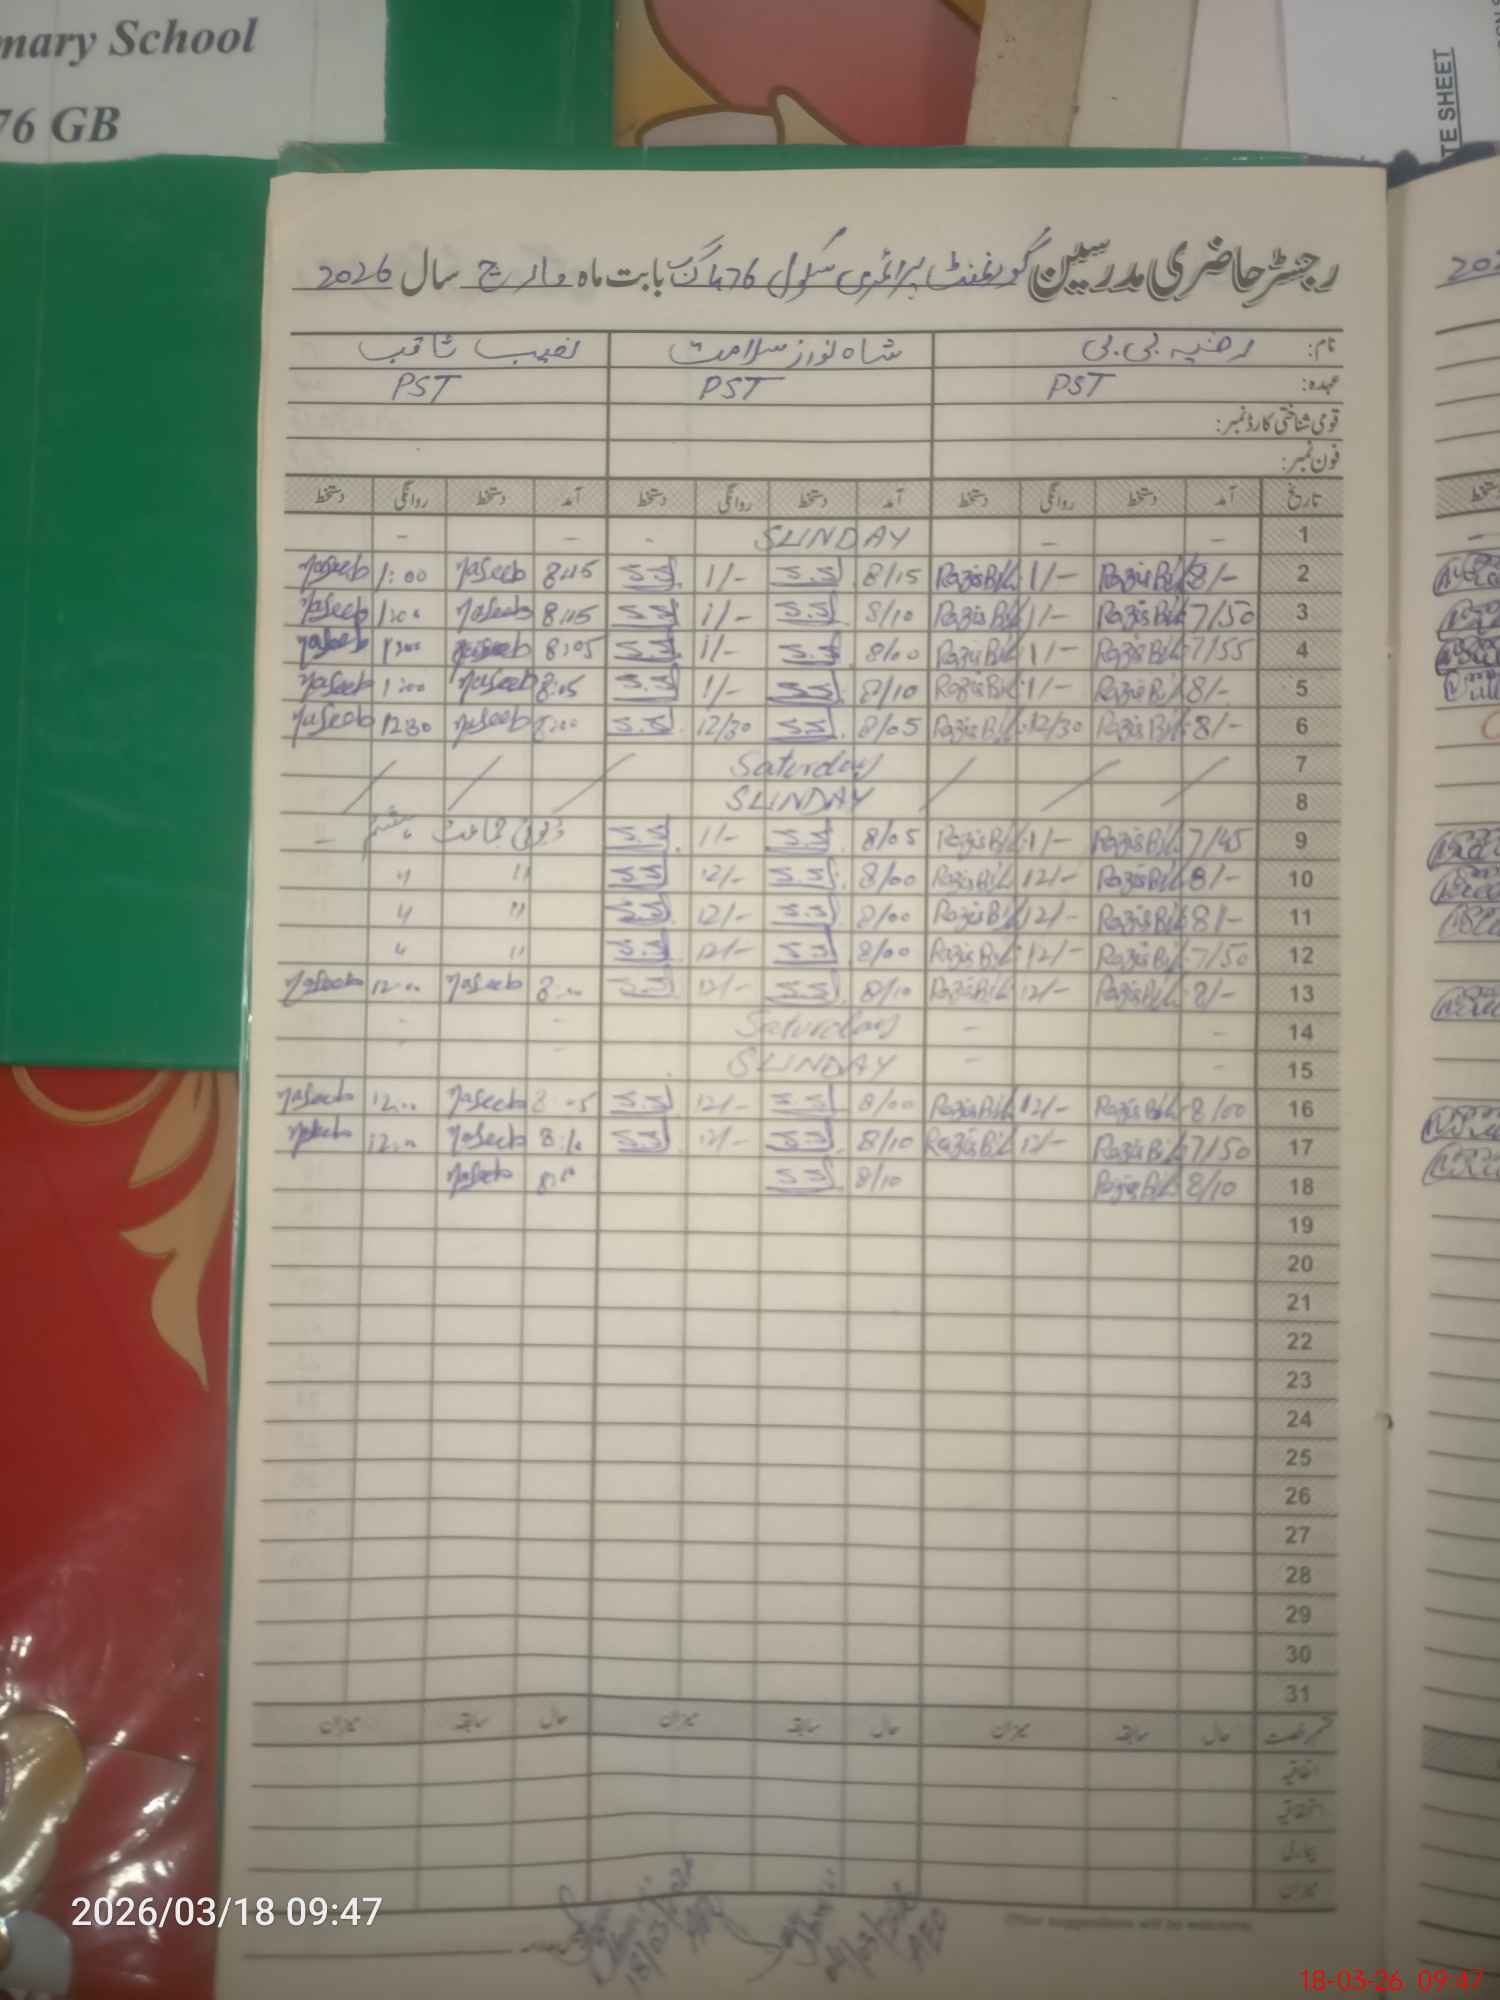 mary School
76 GB
TE SHEET
رجسٹر حاضری مدرسین گورنمنٹ پرائمری سکول 76 گ ب بابت ماہ مارچ سال 2026
نام: رضیہ بی بی شاہ نواز سلامت نصیب ثاقب
عہدہ: PST PST PST
قومی شناختی کارڈ نمبر:
فون نمبر:
تاریخ آمد دستخط روانگی دستخط آمد دستخط روانگی دستخط آمد دستخط روانگی دستخط
1 - - SUNDAY - - -
2 8/- Razia Bibi 1/- Razia Bibi 8/15 S.S 1/- S.S 8:15 Naseeb 1:00 Naseeb
3 7/50 Razia Bibi 1/- Razia Bibi 8/10 S.S 1/- S.S 8:15 Naseeb 1:00 Naseeb
4 7/55 Razia Bibi 1/- Razia Bibi 8/00 S.S 1/- S.S 8:05 Naseeb 1:00 Naseeb
5 8/- Razia Bibi 1/- Razia Bibi 8/10 S.S 1/- S.S 8:05 Naseeb 1:00 Naseeb
6 8/- Razia Bibi 12/30 Razia Bibi 8/05 S.S 12/30 S.S 8:00 Naseeb 12:30 Naseeb
7 Saturday
8 SUNDAY
9 7/45 Razia Bibi 1/- Razia Bibi 8/05 S.S 1/- S.S جماعت
10 8/- Razia Bibi 12/- Razia Bibi 8/00 S.S 12/- S.S " "
11 8/- Razia Bibi 12/- Razia Bibi 8/00 S.S 12/- S.S " "
12 7/50 Razia Bibi 12/- Razia Bibi 8/00 S.S 12/- S.S " "
13 8/- Razia Bibi 12/- Razia Bibi 8/10 S.S 12/- S.S 8:00 Naseeb 12:00 Naseeb
14 - - Saturday - -
15 - - SUNDAY - -
16 8/00 Razia Bibi 12/- Razia Bibi 8/00 S.S 12/- S.S 8:05 Naseeb 12:00 Naseeb
17 7/50 Razia Bibi 12/- Razia Bibi 8/10 S.S 12/- S.S 8:10 Naseeb 12:00 Naseeb
18 8/10 Razia Bibi 8/10 S.S Naseeb
19
20
21
22
23
24
25
26
27
28
29
30
31
قسم رخصت حال سابقہ میزان حال سابقہ میزان حال سابقہ میزان
اتفاقیہ
استحقاقیہ
بیماری
میزان
18/03/2026
AEO
AEO
2026/03/18 09:47
18-03-26 09:47